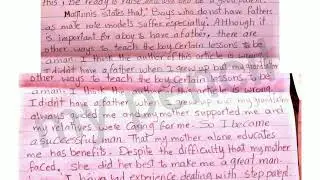 this, be ready to raise and will be a good parent.
Mattinis states that Boys who don't have fathers
as male role models suffer especially. Although it
is important for a boy to have a father, there are
other ways to teach the boy certain lessons to be
a man. I think the author of this article is wrong.
I didn't have a father when I grew up but my grandfather
other ways to teach the boy certain lessons to be
a man. I think the author of this article is wrong.
I didn't have a father when I grew up but my grandfather
always guided me and my mother supported me and
my relatives were caring for me. So I became
a successful man. That my mother alone educates
me has benefits. Despite the difficulty that my mother
faced, she did her best to make me a great man.
I have bad experience dealing with step parent